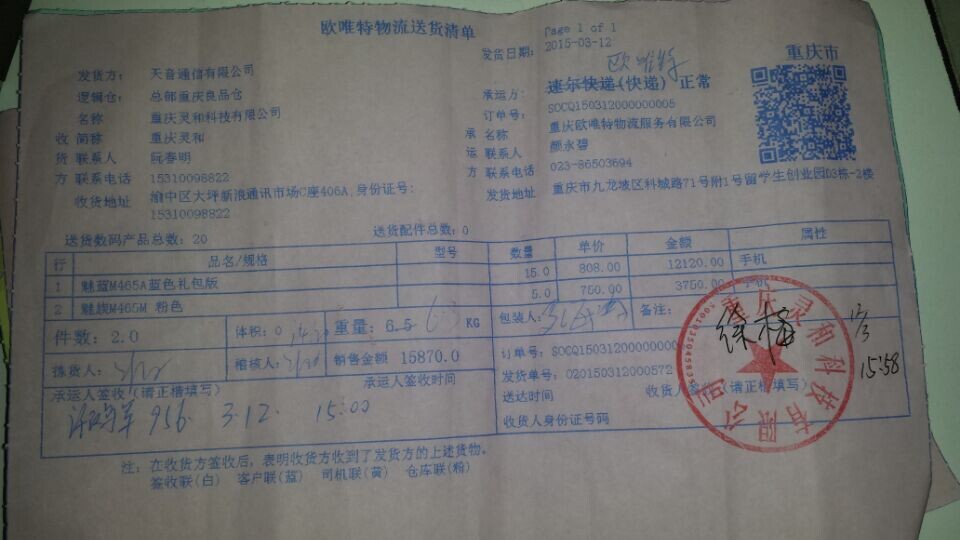 欧唯特物流送货清单
Page 1 of 1
发货日期: 2015-03-12
欧唯特
重庆市
发货方: 天音通信有限公司
承运方: 速尔快递(快递) 正常
逻辑仓: 总部重庆良品仓
订单号: SOCQ150312000000005
名称 重庆灵和科技有限公司
名称 重庆欧唯特物流服务有限公司
收 简称 重庆灵和
承
货 联系人 阮春明
运 联系人 颜永碧
方 联系电话 15310098822
方 联系电话 023-86503694
收货地址 渝中区大坪新浪通讯市场C座406A,身份证号:
15310098822
发货地址 重庆市九龙坡区科城路71号附1号留学生创业园D3栋-2楼
送货数码产品总数: 20
送货配件总数: 0
行 品名/规格 型号 数量 单价 金额 属性
1 魅蓝M465A蓝色礼包版 15.0 808.00 12120.00 手机
2 魅族M465M 粉色 5.0 750.00 3750.00 手机
件数: 2.0 体积: 0 重量: 6.5 63 KG 包装人: 备注:
拣货人: 稽核人: 销售金额 15870.0
订单号: SOCQ15031200000000
发货单号: 020150312000572
承运人签收(请正楷填写) 承运人签收时间
送达时间 收货人签收(请正楷填写)
956 3.12 15:00
收货人身份证号码
徐梅
15:58
注: 在收货方签收后, 表明收货方收到了发货方的上述货物。
签收联(白) 客户联(蓝) 司机联(黄) 仓库联(粉)
重庆灵和科技有限公司